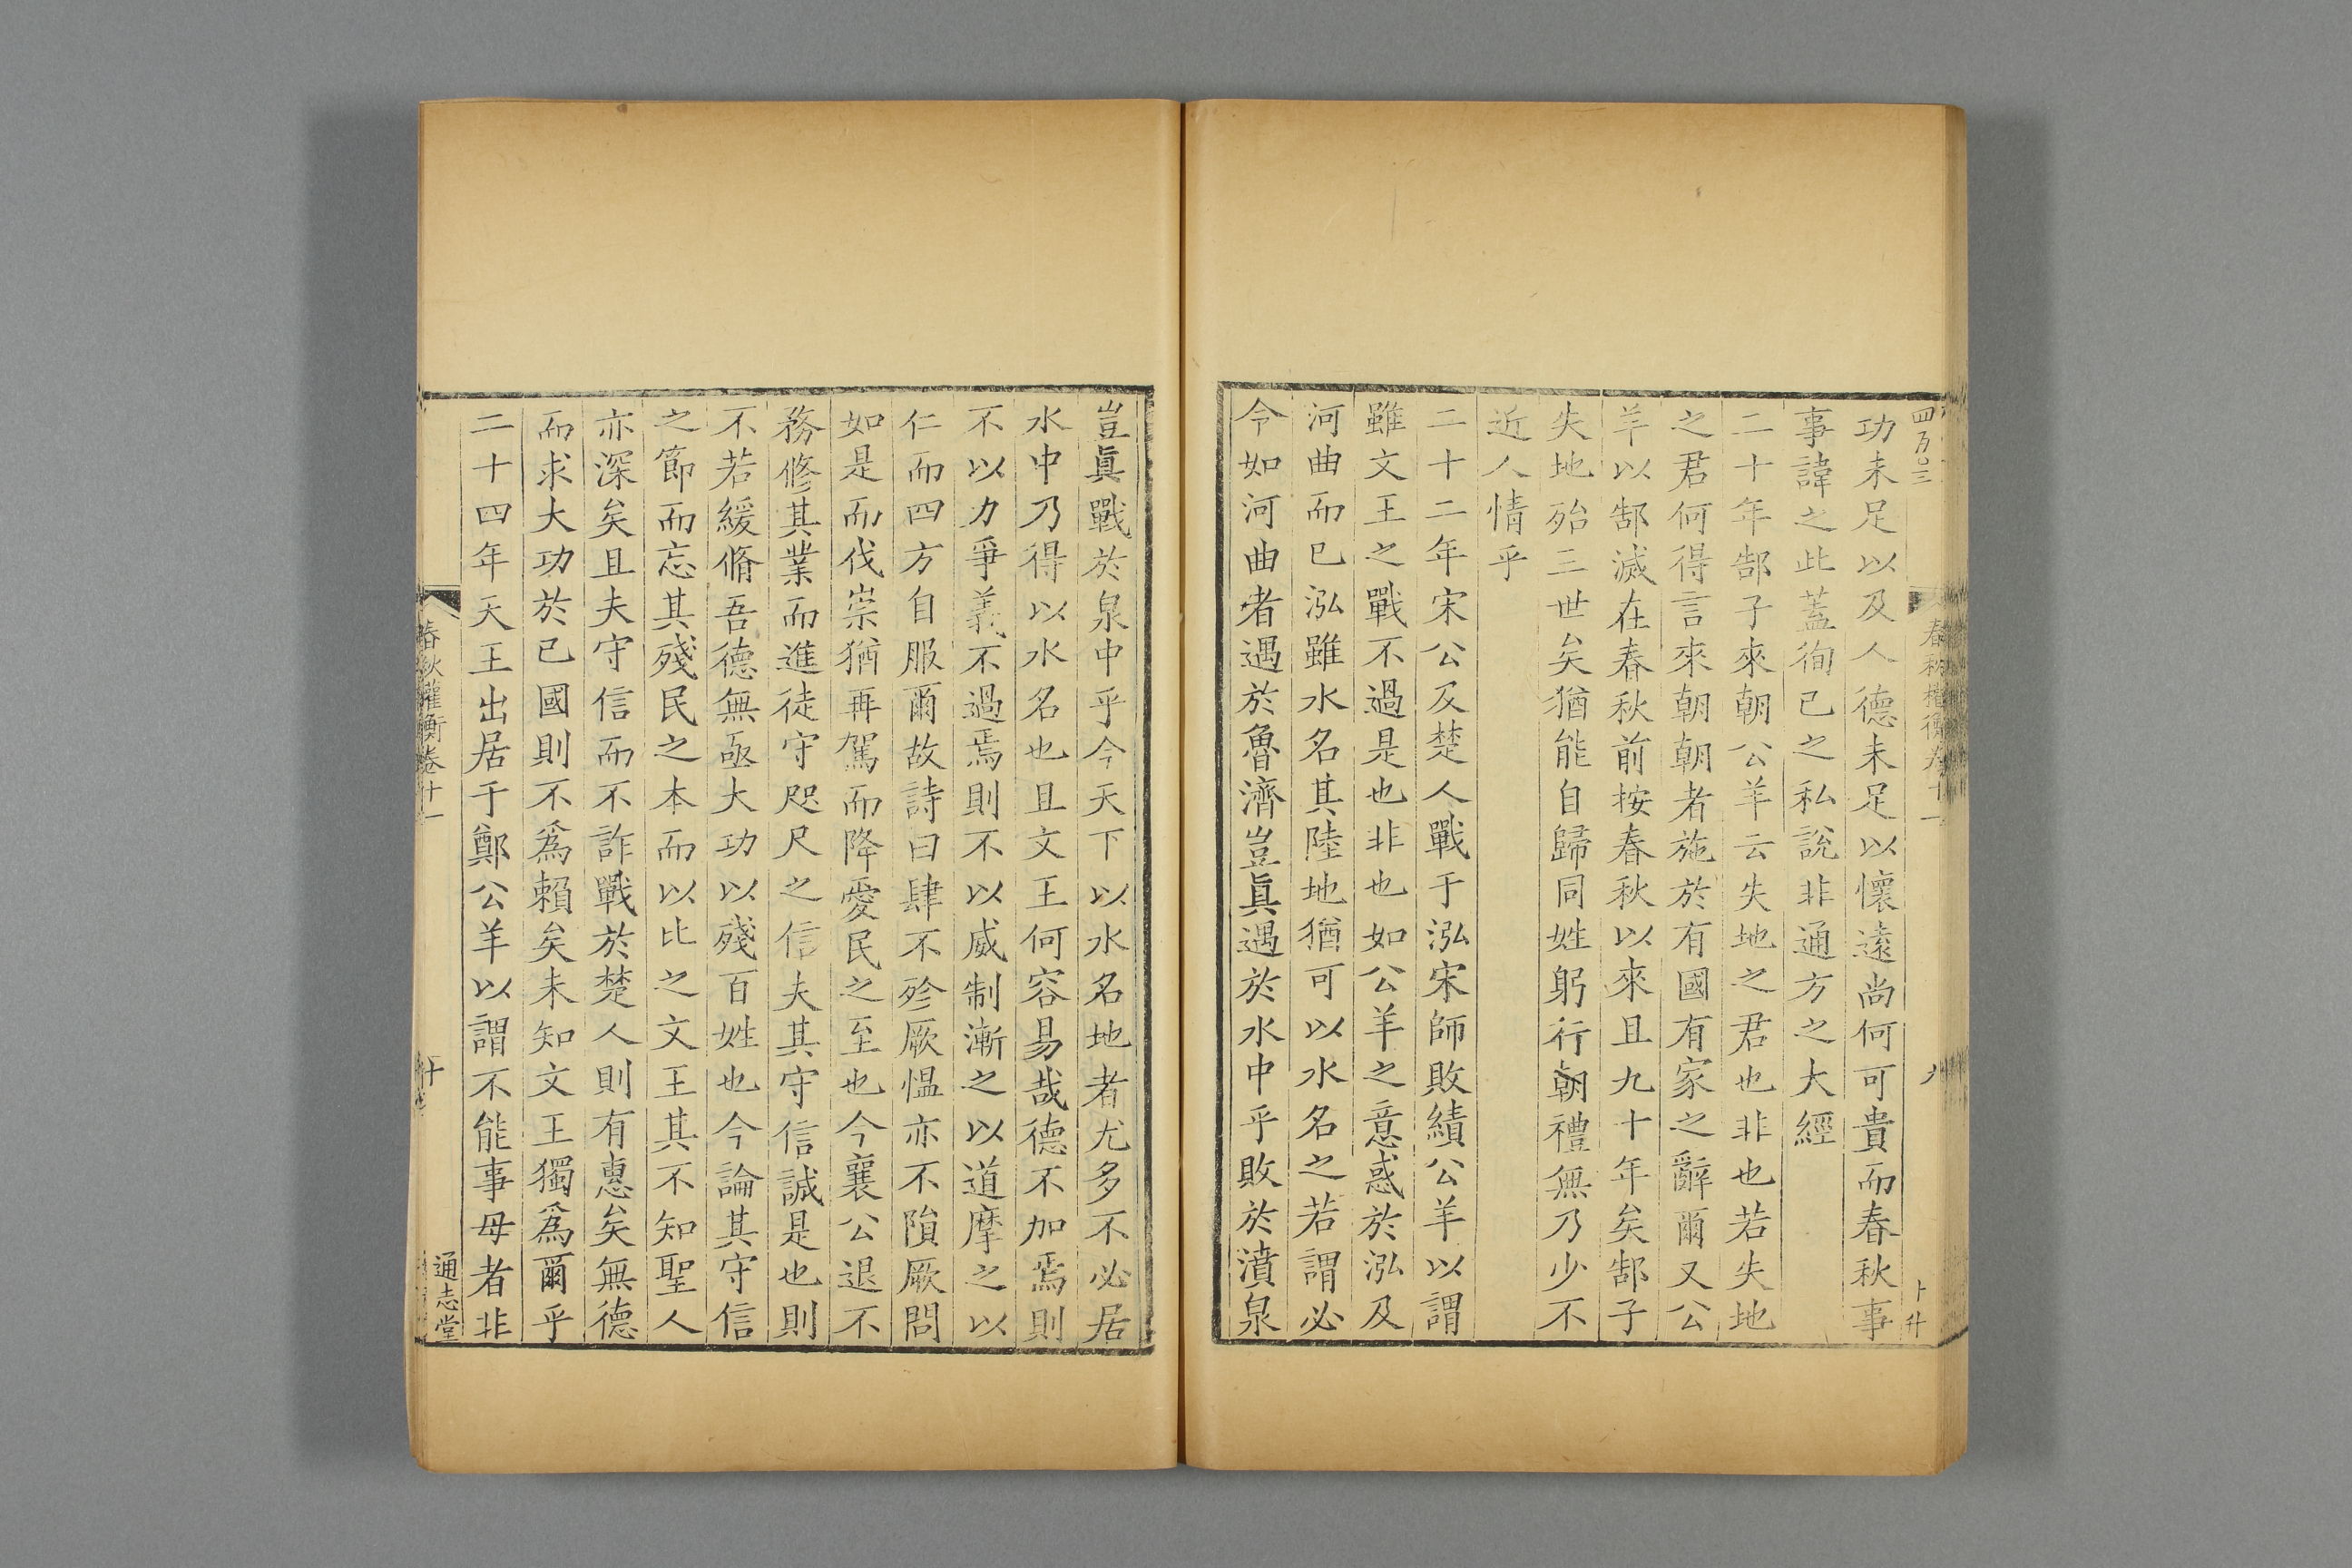 四百〇三
春秋權衡卷十一
九
功未足以及人德未足以懷遠尚何可貴而春秋事
事諱之此蓋徇己之私說非通方之大經
二十年郜子來朝公羊云失地之君也非也若失地
之君何得言來朝朝者施於有國有家之辭爾又公
羊以郜滅在春秋前按春秋以來且九十年矣郜子
失地殆三世矣猶能自歸同姓躬行朝禮無乃少不
近人情乎
二十二年宋公及楚人戰于泓宋師敗績公羊以謂
雖文王之戰不過是也非也如公羊之意惑於泓及
河曲而已泓雖水名其陸地猶可以水名之若謂必
令如河曲者遇於魯濟豈眞遇於水中乎敗於濆泉
豈眞戰於泉中乎今天下以水名地者尤多不必居
水中乃得以水名也且文王何容易哉德不加焉則
不以力爭義不過焉則不以威制漸之以道摩之以
仁而四方自服爾故詩曰肆不殄厥愠亦不隕厥問
如是而伐崇猶再駕而降愛民之至也今襄公退不
務修其業而進徒守咫尺之信夫其守信誠是也則
不若緩脩吾德無亟大功以殘百姓也今論其守信
之節而忘其殘民之本而以比之文王其不知聖人
亦深矣且夫守信而不詐戰於楚人則有惠矣無德
而求大功於已國則不爲賴矣未知文王獨爲爾乎
二十四年天王出居于鄭公羊以謂不能事母者非
春秋權衡卷十一
十
通志堂